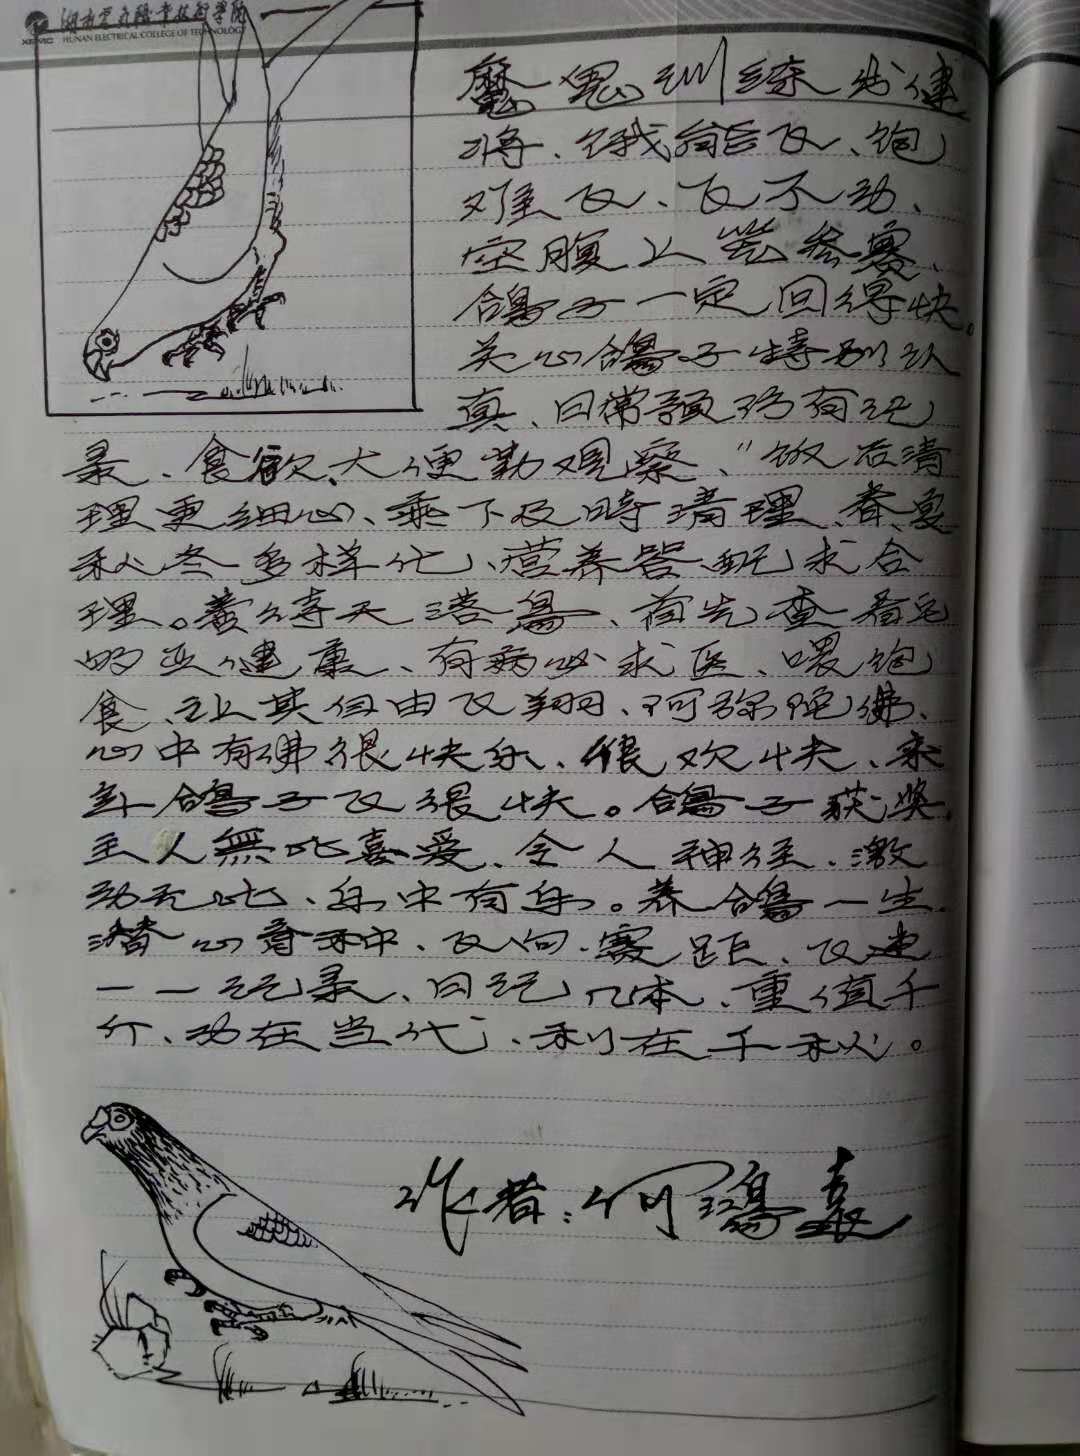 湖南电气职业技术学院
HUNAN ELECTRICAL COLLEGE OF TECHNOLOGY
魔鬼训练成健
将、饿能飞、饱
难飞、飞不动、
空腹上笼参赛、
鴿子一定回得快。
关心鴿子特别认
真、日常预防有记
录、食欲、大便勤观察、"饭后清
理更细心、乘下及時清理、春夏
秋冬多样化、营养搭配求合
理。
天落鳥、首先查看它
的亚健康、有病必求医、喂饱
食、让其自由飞翔、阿弥陀佛、
心中有佛很快乐、很欢快、来
年鴿子飞很快。鴿子获奖、
主人無比喜爱、令人神经、激
动无比、乐中有乐。养鴿一生、
潜心育种、飞向、赛距、飞速
一一记录、日记几本、重值千
斤、功在当代、利在千秋。
作者:何鴻